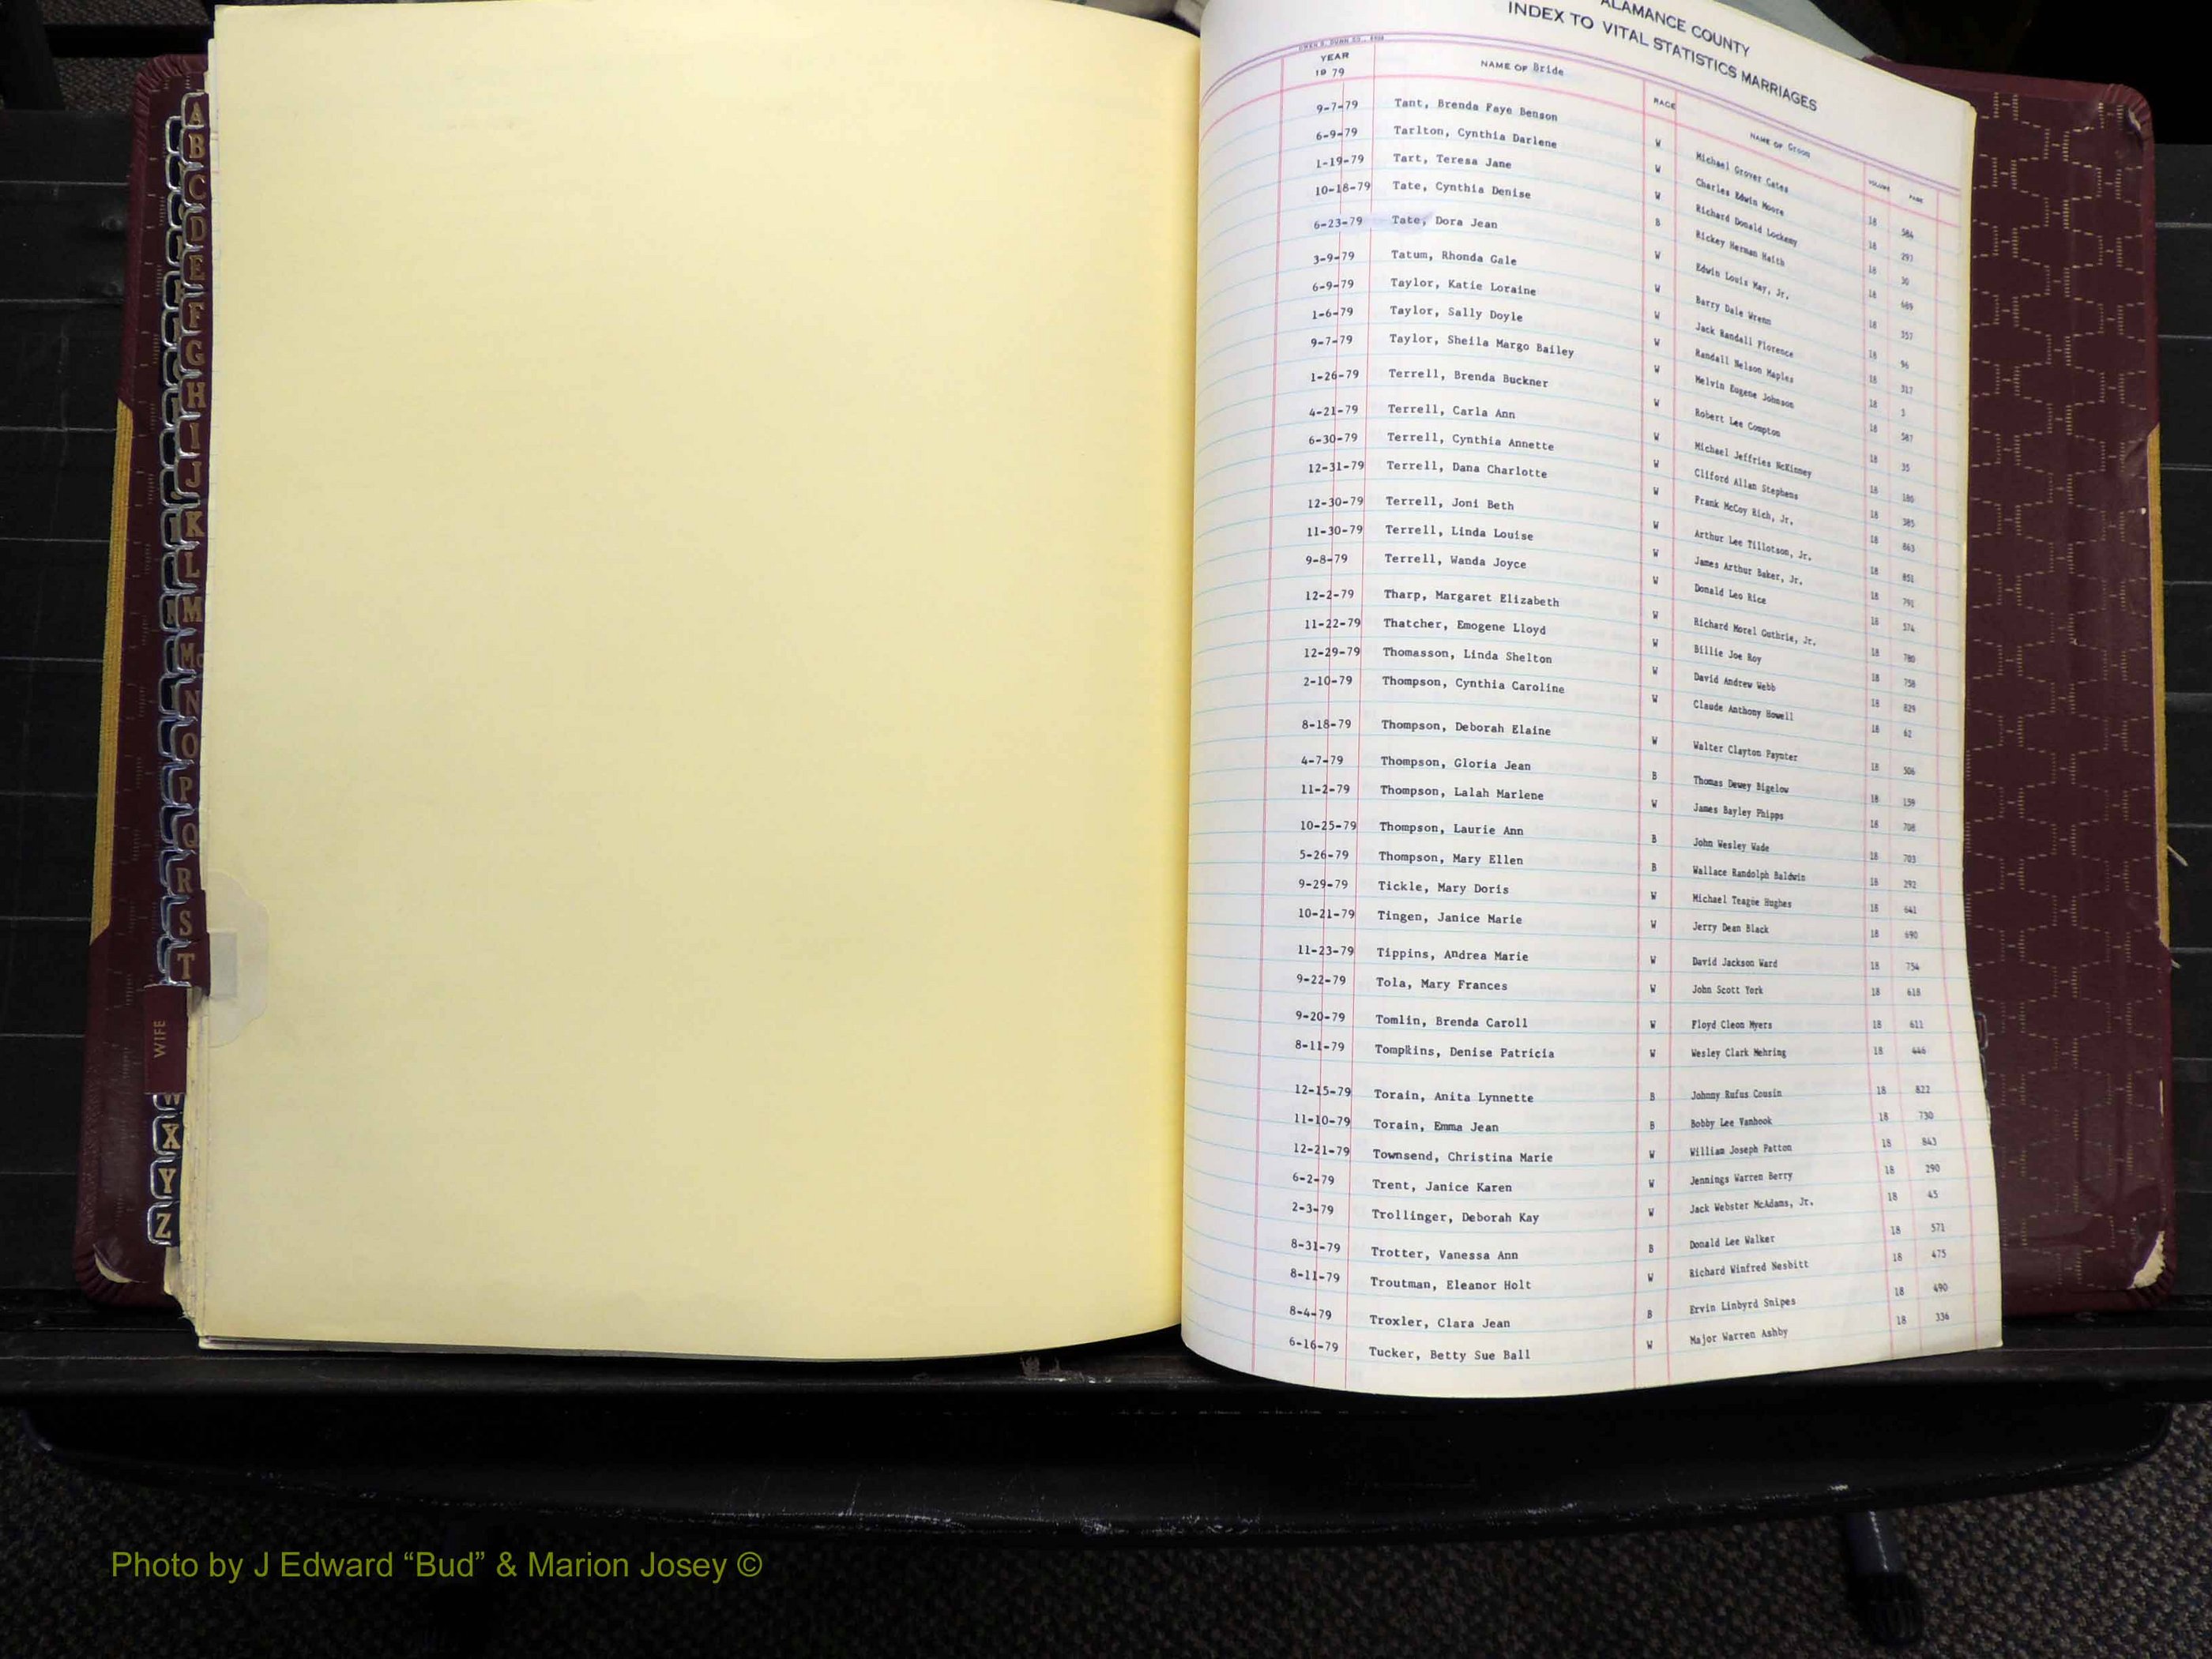 ALAMANCE COUNTY
INDEX TO VITAL STATISTICS MARRIAGES
YEAR 1979 NAME OF Bride RACE NAME OF Groom VOLUME PAGE
9-7-79 Tant, Brenda Faye Benson W Michael Grover Cates 18 584
6-9-79 Tarlton, Cynthia Darlene W Charles Edwin Moore 18 297
1-19-79 Tart, Teresa Jane W Richard Donald Lockemy 18 30
10-18-79 Tate, Cynthia Denise B Rickey Herman Haith 18 689
6-23-79 Tate, Dora Jean W Edwin Louis May, Jr. 18 357
3-9-79 Tatum, Rhonda Gale W Barry Dale Wrenn 18 96
6-9-79 Taylor, Katie Loraine W Jack Randall Florence 18 317
1-6-79 Taylor, Sally Doyle W Randall Nelson Maples 18 3
9-7-79 Taylor, Sheila Margo Bailey W Melvin Eugene Johnson 18 587
1-26-79 Terrell, Brenda Buckner W Robert Lee Compton 18 35
4-21-79 Terrell, Carla Ann W Michael Jeffries McKinney 18 180
6-30-79 Terrell, Cynthia Annette W Clifford Allan Stephens 18 385
12-31-79 Terrell, Dana Charlotte W Frank McCoy Rich, Jr. 18 863
12-30-79 Terrell, Joni Beth W Arthur Lee Tillotson, Jr. 18 851
11-30-79 Terrell, Linda Louise W James Arthur Baker, Jr. 18 791
9-8-79 Terrell, Wanda Joyce W Donald Leo Rice 18 574
12-2-79 Tharp, Margaret Elizabeth W Richard Morel Guthrie, Jr. 18 780
11-22-79 Thatcher, Emogene Lloyd W Billie Joe Roy 18 758
12-29-79 Thomasson, Linda Shelton W David Andrew Webb 18 829
2-10-79 Thompson, Cynthia Caroline W Claude Anthony Howell 18 62
8-18-79 Thompson, Deborah Elaine W Walter Clayton Paynter 18 506
4-7-79 Thompson, Gloria Jean B Thomas Dewey Bigelow 18 159
11-2-79 Thompson, Lalah Marlene W James Bayley Phipps 18 708
10-25-79 Thompson, Laurie Ann B John Wesley Wade 18 703
5-26-79 Thompson, Mary Ellen B Wallace Randolph Baldwin 18 292
9-29-79 Tickle, Mary Doris W Michael Teague Hughes 18 641
10-21-79 Tingen, Janice Marie W Jerry Dean Black 18 690
11-23-79 Tippins, Andrea Marie W David Jackson Ward 18 754
9-22-79 Tola, Mary Frances W John Scott York 18 618
9-20-79 Tomlin, Brenda Caroll W Floyd Cleon Myers 18 611
8-11-79 Tompkins, Denise Patricia W Wesley Clark Mehring 18 446
12-15-79 Torain, Anita Lynnette B Johnny Rufus Cousin 18 822
11-10-79 Torain, Emma Jean B Bobby Lee Vanhook 18 730
12-21-79 Townsend, Christina Marie W William Joseph Patton 18 843
6-2-79 Trent, Janice Karen W Jennings Warren Berry 18 290
2-3-79 Trollinger, Deborah Kay W Jack Webster McAdams, Jr. 18 45
8-31-79 Trotter, Vanessa Ann B Donald Lee Walker 18 571
8-11-79 Troutman, Eleanor Holt W Richard Winfred Nesbitt 18 475
8-4-79 Troxler, Clara Jean B Ervin Linbyrd Snipes 18 490
6-16-79 Tucker, Betty Sue Ball W Major Warren Ashby 18 336
A
B
C
D
E
F
G
H
I
J
K
L
M
Mc
N
O
P
Q
R
S
T
WIFE
W
X
Y
Z
Photo by J Edward “Bud” & Marion Josey ©